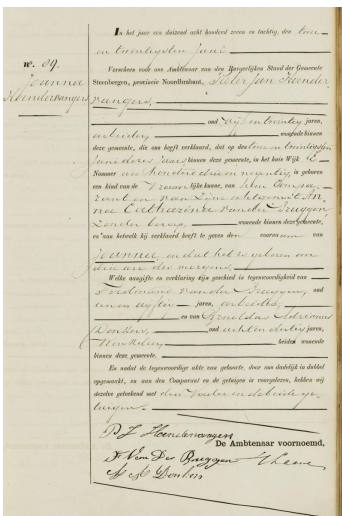 In het jaar een duizend acht honderd zeven en tachtig, den twee
en twintigsten Juni
Verscheen voor ons Ambtenaar van den Burgerlijken Stand der Gemeente
No. 89.
Steenbergen, provincie Noordbrabant, Pieter Jan Heender
Joanna
vangers,
Heendervangers
oud vijf en twintig jaren,
arbeider, wonende binnen
deze gemeente, die ons heeft verklaard, dat op den twee en twintigsten
Juni dezes jaars binnen deze gemeente, in het huis Wijk E
Nummer een honderd drie en negentig, is geboren
een kind van de Vrouwelijke kunne, van hem Compa-
rant en van zijne echtgenoot An-
na Catharina van der Bruggen
zonder beroep, wonende binnen deze gemeente,
en aan hetwelk hij verklaard heeft te geven den voornaam van
Joanna, en dat het is geboren om
drie ure des morgens.
Welke aangifte en verklaring zijn geschied in tegenwoordigheid van
Ferdinand van der Bruggen, oud
een en vijftig jaren, arbeider,
en van Arnoldus Adrianus
Donkers, oud acht en dertig jaren,
winkelier, beiden wonende
binnen deze gemeente.
En nadat de tegenwoordige akte van geboorte, door ons dadelijk in dubbel
opgemaakt, en aan den Comparant en de getuigen is voorgelezen, hebben wij
dezelve geteekend met den Vader en de beide ge-
tuigen.
P J Heendervangers
De Ambtenaar voornoemd,
F Van Der Bruggen
A A Donkers